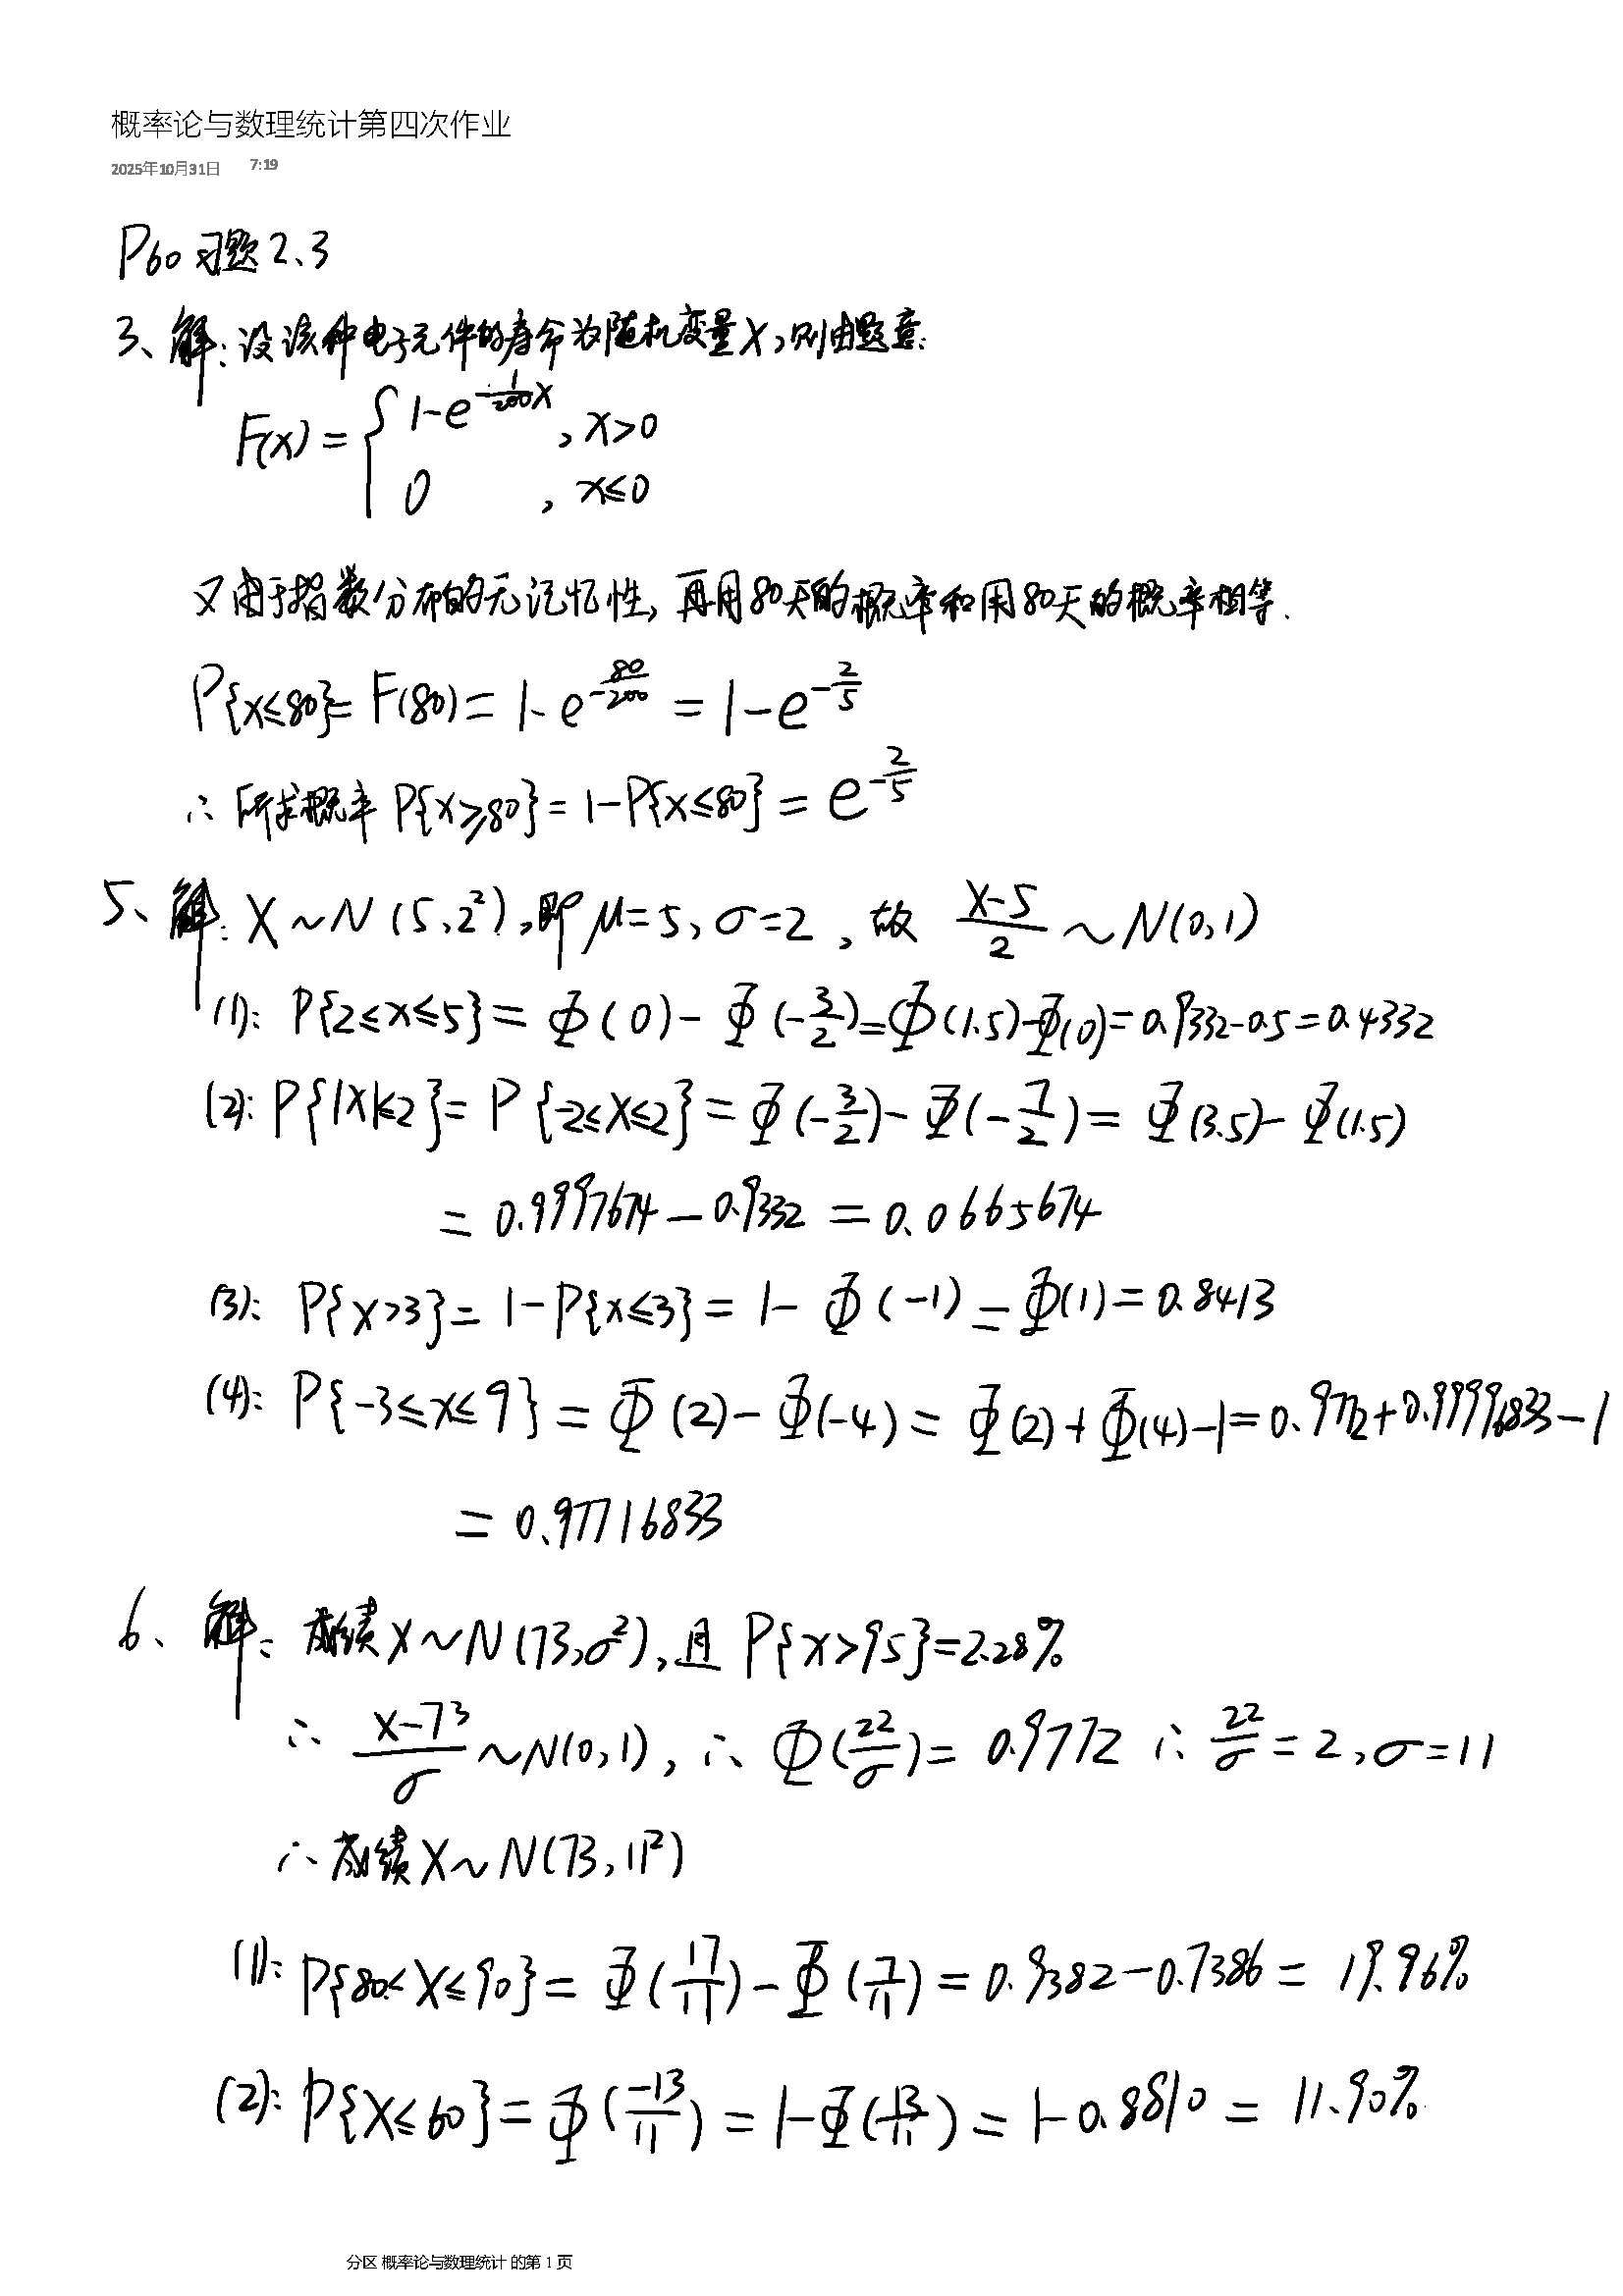 概率论与数理统计第四次作业
2025年10月31日 7:19
P60 习题2.3
3、解:设该种电子元件的寿命为随机变量X,则由题意:
F(x) = { 1-e^{-\frac{1}{200}x}, x>0
0 , x≤0
又由于指数分布的无记忆性,再用80天的概率和用80天的概率相等.
P{x≤80}= F(80) = 1-e^{-\frac{80}{200}} = 1-e^{-\frac{2}{5}}
∴所求概率 P{x≥80} = 1-P{x≤80} = e^{-\frac{2}{5}}
5、解:X~N(5,2²),即μ=5,σ=2,故 \frac{X-5}{2} ~N(0,1)
(1): P{2≤x≤5} = Φ(0)-Φ(-\frac{3}{2}) = Φ(1.5)-Φ(0) = 0.9332-0.5=0.4332
(2): P{|X|≤2} = P{-2≤X≤2} = Φ(-\frac{3}{2})-Φ(-\frac{7}{2}) = Φ(3.5)-Φ(1.5)
= 0.9997674-0.9332 = 0.0665674
(3): P{x>3} = 1-P{x≤3} = 1-Φ(-1) = Φ(1) = 0.8413
(4): P{-3≤x≤9} = Φ(2)-Φ(-4) = Φ(2)+Φ(4)-1=0.9772+0.9999683-1
= 0.97716833
6、解:成绩X~N(73,σ²),且 P{x>95}=2.28%
∴ \frac{x-73}{σ} ~N(0,1), ∴ Φ(\frac{22}{σ}) = 0.9772 ∴ \frac{22}{σ} = 2,σ=11
∴成绩X~N(73,11²)
(1): P{80<X≤90} = Φ(\frac{17}{11})-Φ(\frac{7}{11}) = 0.9382-0.7386 = 19.96%
(2): P{X≤60} = Φ(\frac{-13}{11}) = 1-Φ(\frac{13}{11}) = 1-0.8810 = 11.90%
分区 概率论与数理统计 的第 1 页